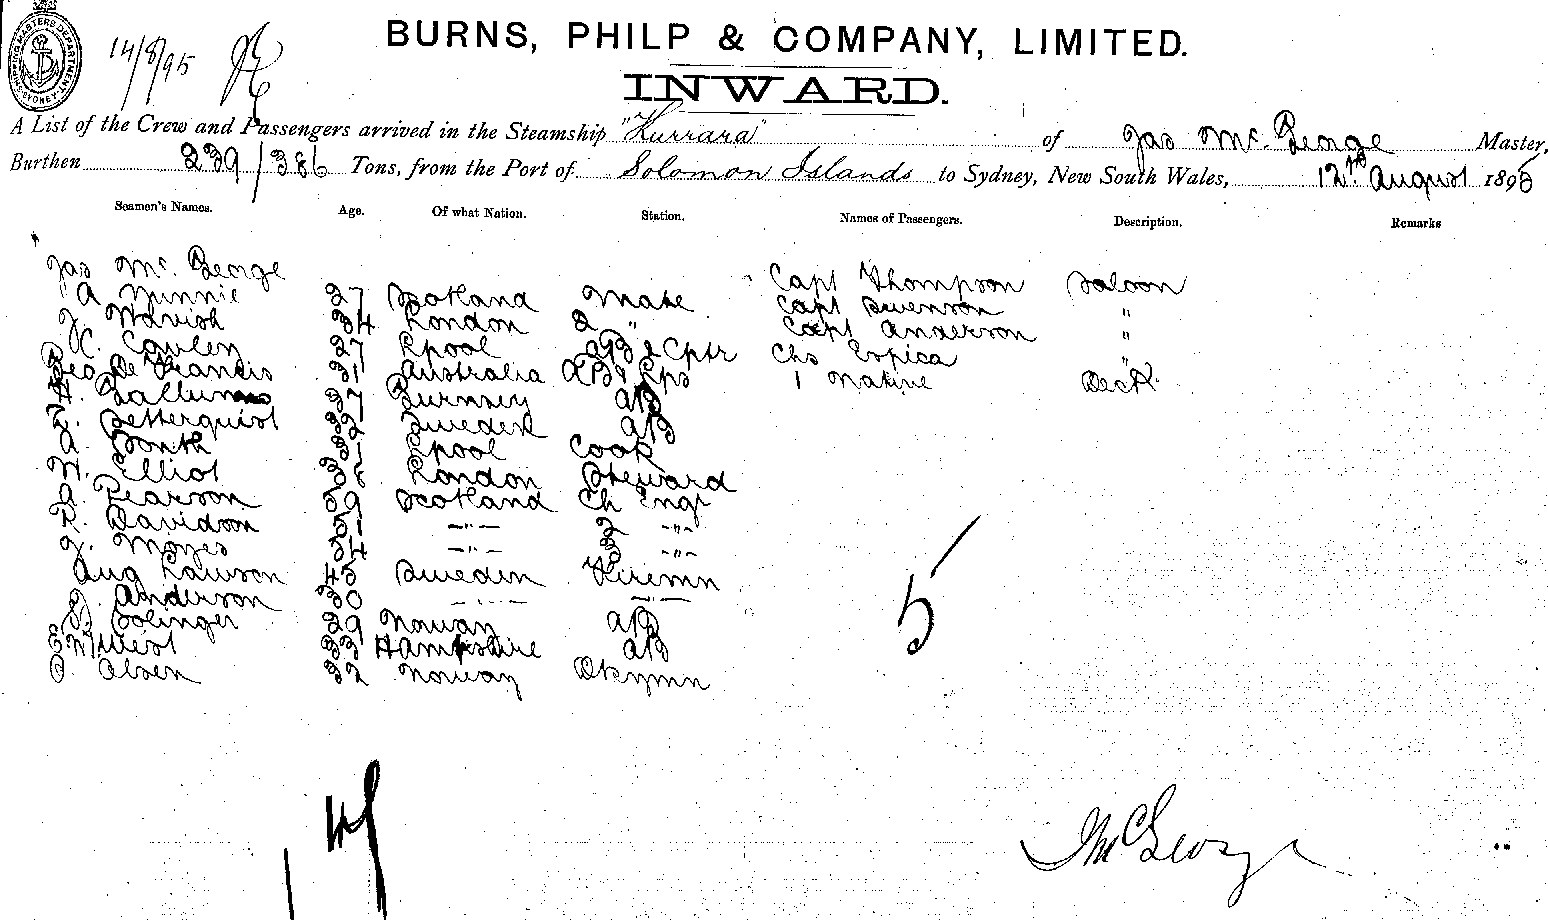 SHIPPING MASTERS DEPARTMENT SYDNEY
14/8/95
BURNS, PHILP & COMPANY, LIMITED.
INWARD.
A List of the Crew and Passengers arrived in the Steamship "Kurrara" of Jas Mc. George Master,
Burthen 239/386 Tons, from the Port of Solomon Islands to Sydney, New South Wales, 12th August 1895
Seamen's Names. Age. Of what Nation. Station. Names of Passengers. Description. Remarks
Jas Mc. George Capt Thompson Saloon
A Minnie 27 Scotland Mate Capt Svenson "
34 London 2 " Capt Anderson "
27 Lpool AB & Cptr Chs "
Geo De Francis Australia AB 1 Native Deck
37 AB
Sweden AB
A. Lpool Cook
W. Elliot London Steward
A. Pearson 39 Scotland Ch Engr
R. Davidson —"— 2 —"—
J. Moyes —"— 3 —"—
Aug Lawson Sweden Firemn
Anderson 30 —"— —"—
29 Norway AB
West 33 Hampshire AB
O. Olsen 32 Norway Dkymn
5
J McGeorge